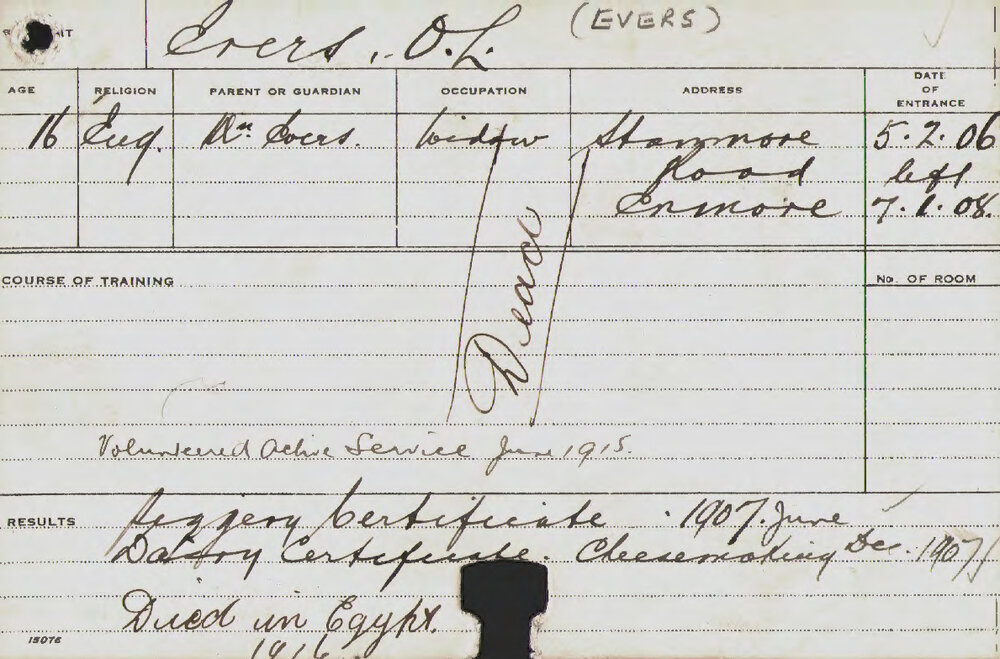 Evers, O.L. (EVERS)
AGE RELIGION PARENT OR GUARDIAN OCCUPATION ADDRESS DATE OF ENTRANCE
16 Eng. Evers. Widow Stanmore 5.2.06
Road left
Enmore 7.1.08.
Dead
COURSE OF TRAINING No. OF ROOM
Volunteered Active Service June 1915.
RESULTS Piggery Certificate . 1907. June
Dairy Certificate. Cheesemaking Dec. 1907
Died in Egypt.
15076
1916